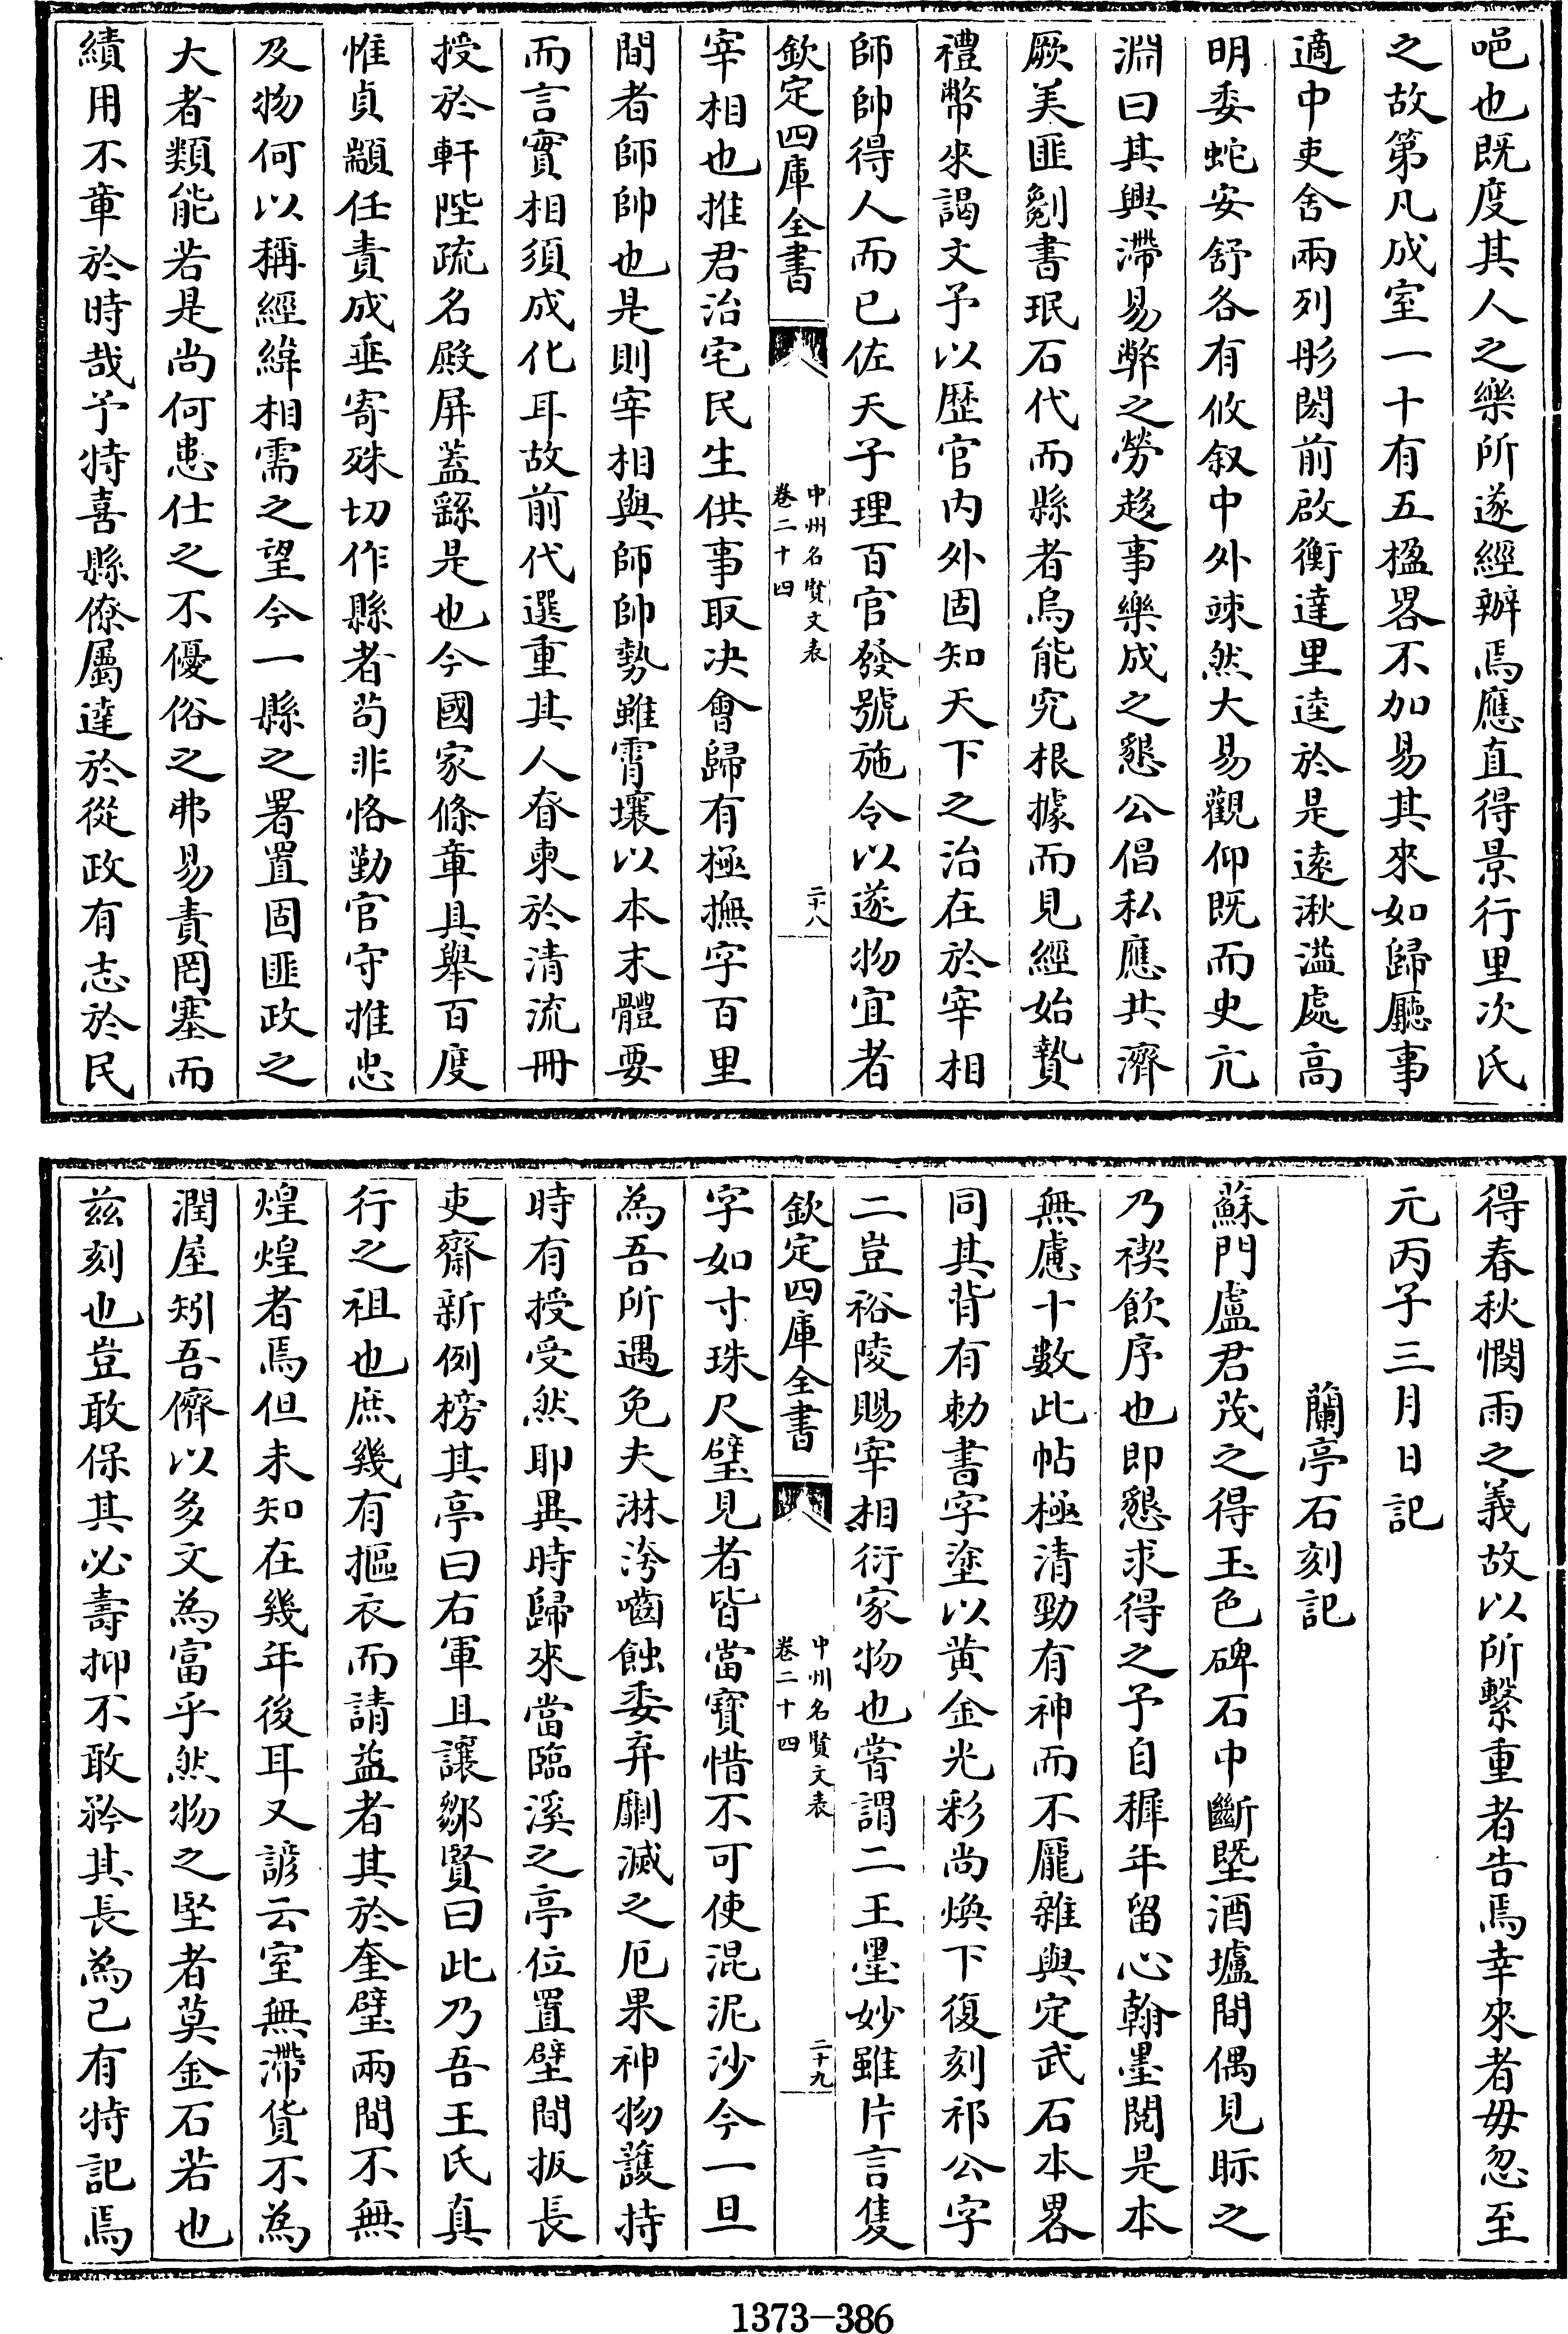 唈也既度其人之樂所遂經辦焉應直得景行里次氏
之故第凡成室一十有五楹畧不加易其來如歸廳事
適中吏舍兩列彤閎前啟衡達里逵於是遠湫溢處高
明委蛇安舒各有攸叙中外竦然大易觀仰既而史亢
淵曰其興滯易弊之勞趍事樂成之懇公倡私應共濟
厥美匪劖書珉石代而縣者烏能究根據而見經始贄
禮幣來謁文予以歷官内外固知天下之治在於宰相
師帥得人而已佐天子理百官發號施令以遂物宜者
欽定四庫全書
中州名賢文表
卷二十四
二十八
宰相也推君治宅民生供事取决會歸有極撫字百里
間者師帥也是則宰相與師帥勢雖霄壤以本末體要
而言實相須成化耳故前代選重其人眘柬於清流冊
授於軒陛疏名殿屏蓋繇是也今國家條章具舉百度
惟貞顓任責成垂寄殊切作縣者苟非恪勤官守推忠
及物何以稱經緯相需之望今一縣之署置固匪政之
大者類能若是尚何患仕之不優俗之弗易責罔塞而
績用不章於時哉予特喜縣僚屬達於從政有志於民
得春秋憫雨之義故以所繫重者告焉幸來者毋忽至
元丙子三月日記
蘭亭石刻記
蘇門盧君茂之得玉色碑石中斷墍酒壚間偶見眎之
乃禊飲序也即懇求得之予自穉年留心翰墨閱是本
無慮十數此帖極清勁有神而不厖雜與定武石本畧
同其背有勅書字塗以黄金光彩尚煥下復刻祁公字
二豈裕陵賜宰相衍家物也嘗謂二王墨妙雖片言隻
欽定四庫全書
中州名賢文表
卷二十四
二十九
字如寸珠尺璧見者皆當寶惜不可使混泥沙今一旦
為吾所遇免夫淋洿嚙蝕委弃劘滅之厄果神物護持
時有授受然耶異時歸來當臨溪之亭位置壁間扳長
吏齋新例榜其亭曰右軍且讓鄒賢曰此乃吾王氏真
行之祖也庶幾有摳衣而請益者其於奎璧兩間不無
煌煌者焉但未知在幾年後耳又諺云室無滯貨不為
潤屋矧吾儕以多文為富乎然物之堅者莫金石若也
兹刻也豈敢保其必壽抑不敢矜其長為己有特記焉
1373-386